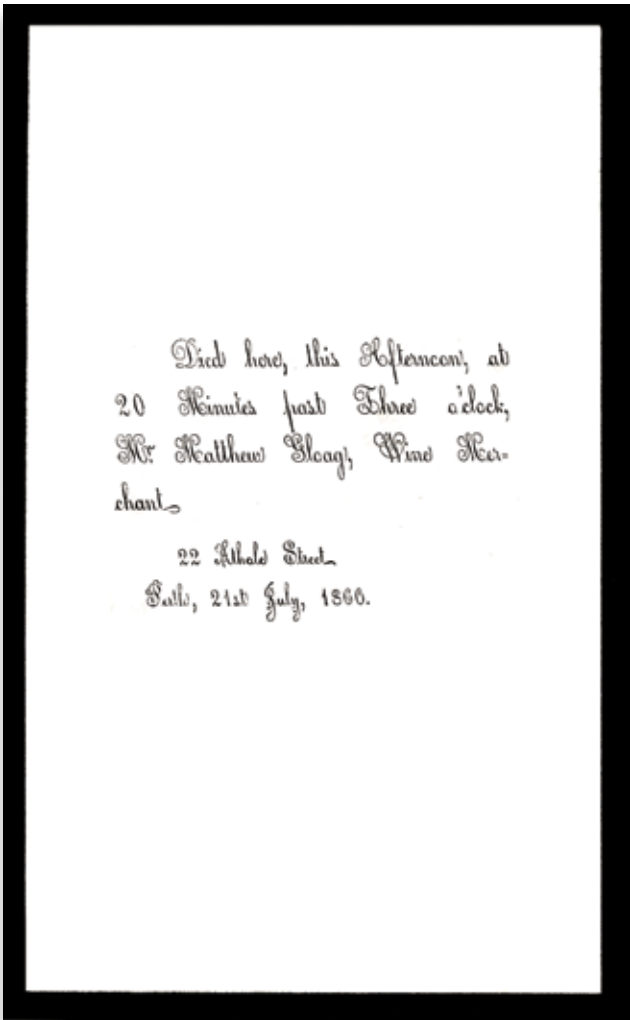 Died here, this Afternoon, at
20 Minutes past Three o'clock,
Mr. Matthew Gloag, Wine Mer-
chant.
22 Athole Street.
Perth, 21st July, 1860.